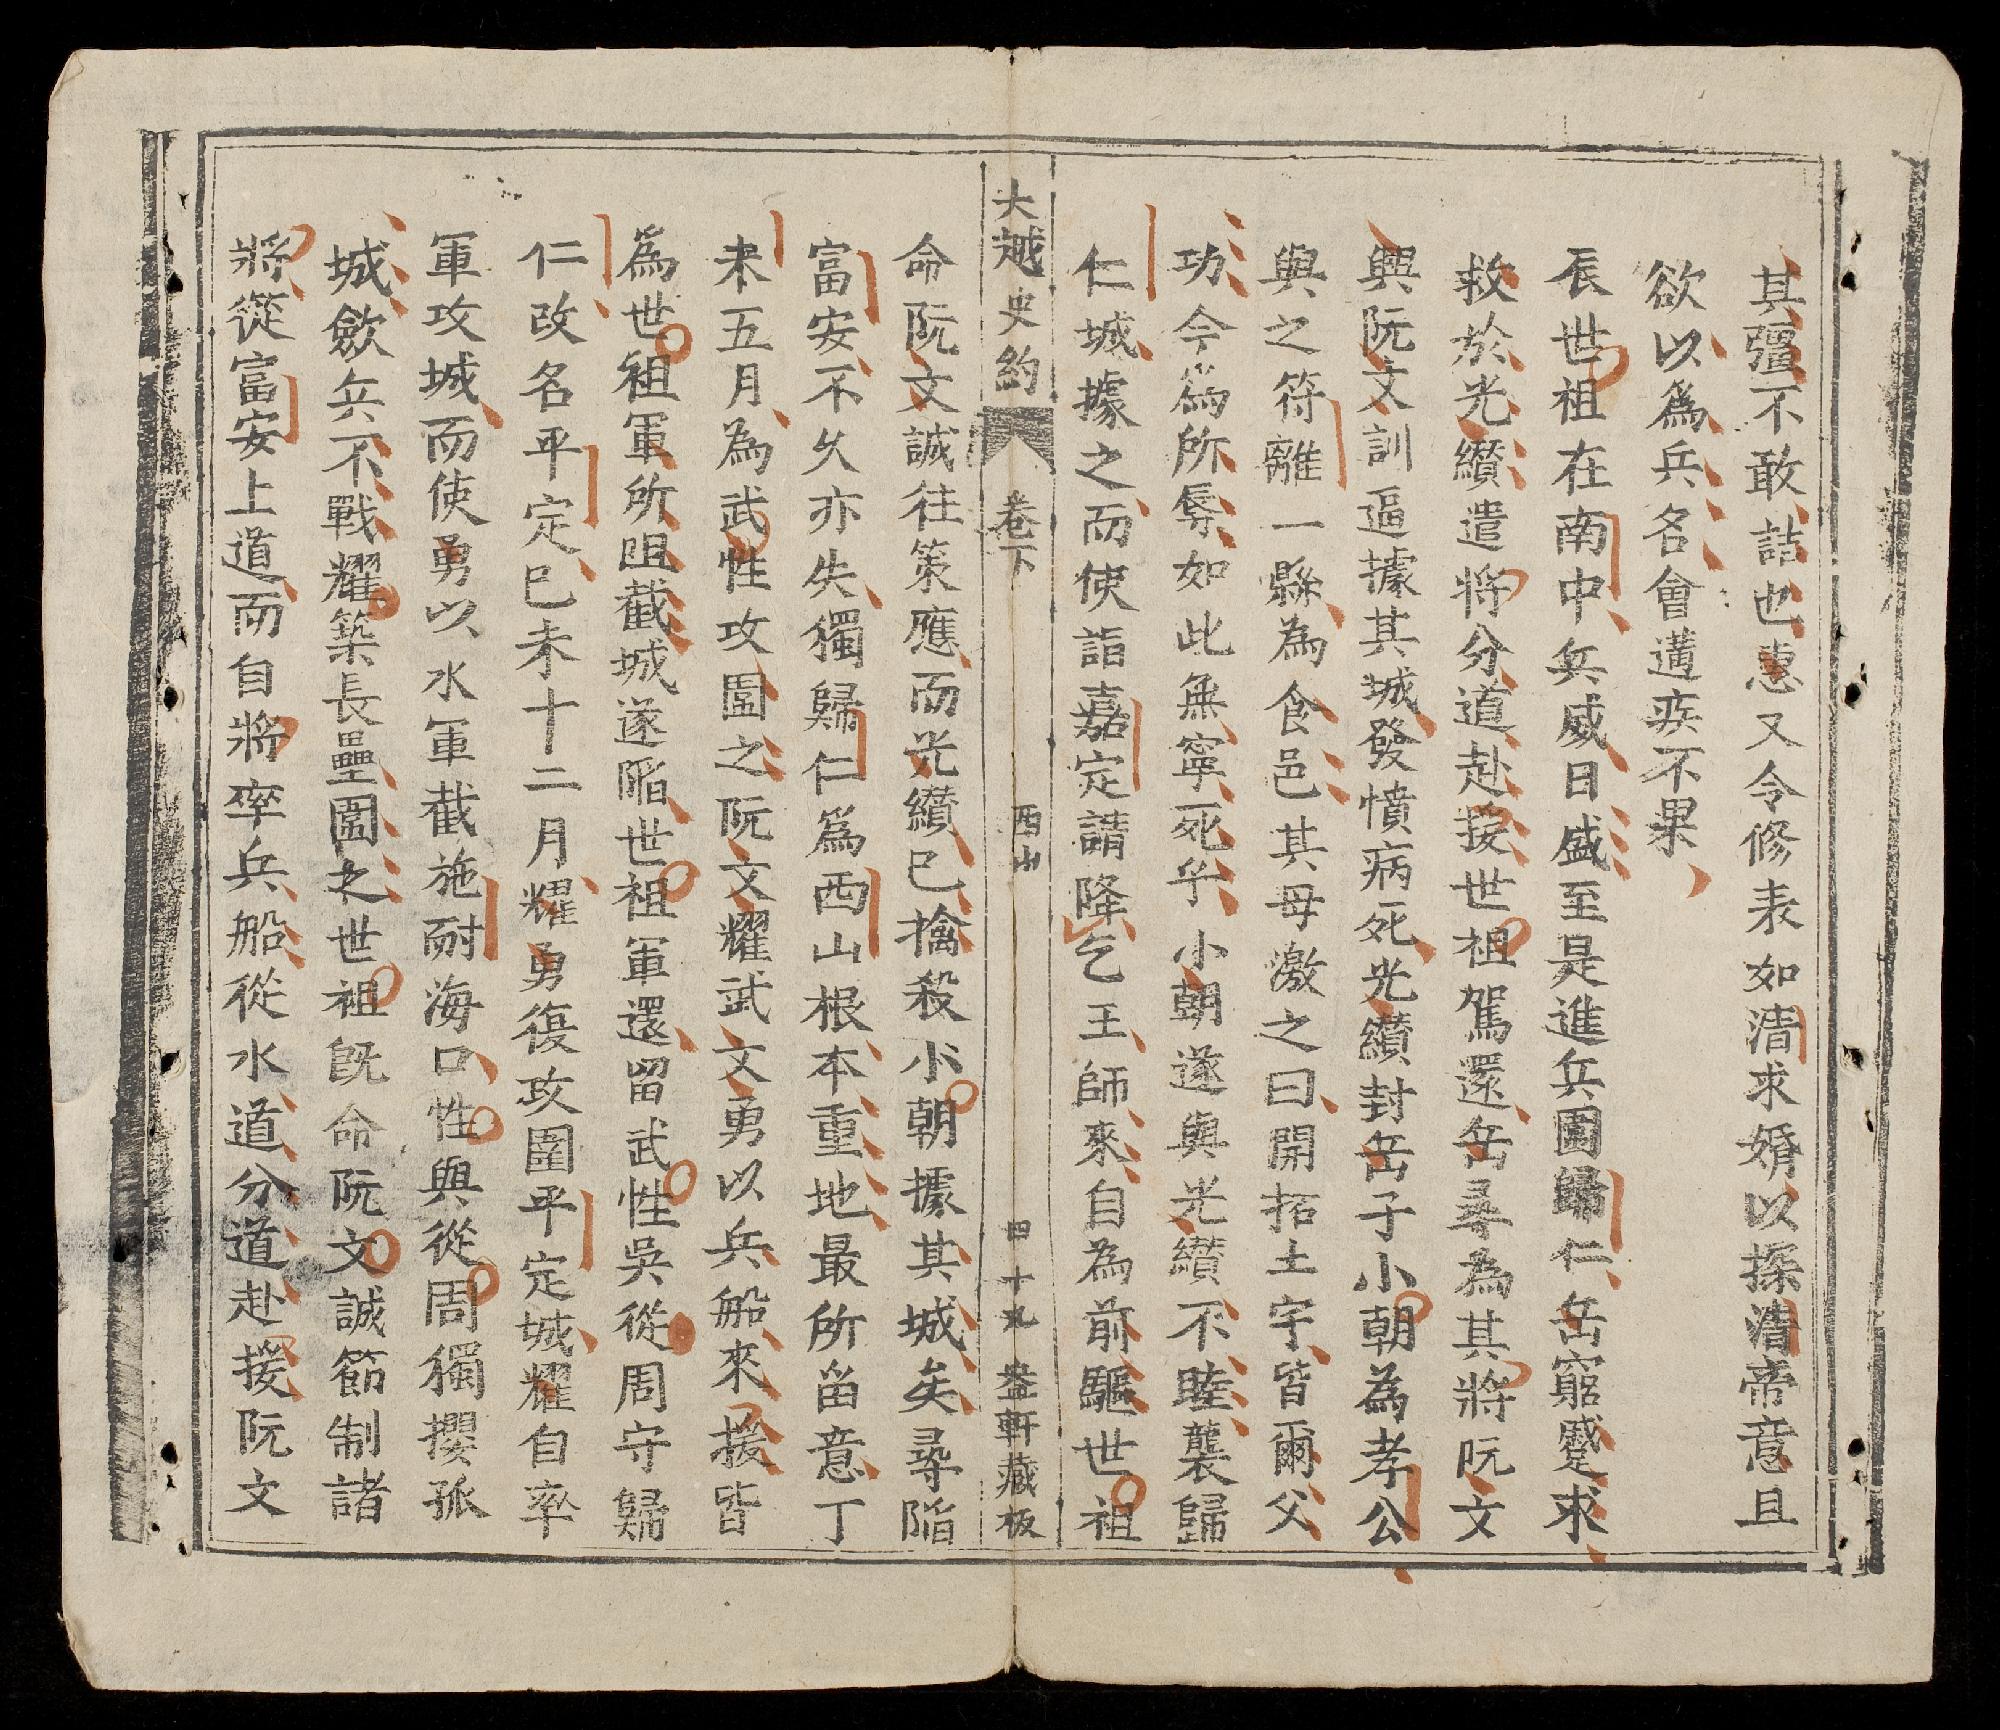 其彊不敢詰也惠又令修表如清求婚以探清帝意且
欲以爲兵名會遘疾不果
辰世祖在南中兵威日盛至是進兵圍歸仁岳窮蹙求
救於光纘遣將分道赴援世祖駕還岳尋為其將阮文
興阮文訓逼據其城發憤病死光纘封岳子小朝為孝公
與之符離一縣為食邑其母激之曰開拓土宇皆爾父
功今爲所辱如此無寧死乎小朝遂與光纘不睦襲歸
仁城據之而使詣嘉定請降乞王師來自為前驅世祖
大越史約 卷下 西山 四十九 盎軒藏板
命阮文誠往策應而光纘已擒殺小朝據其城矣尋陷
富安不久亦失獨歸仁爲西山根本重地最所畱意丁
未五月為武性攻圍之阮文耀武文勇以兵船來援皆
為世祖軍所咀截城遂陷世祖軍還留武性吳從周守歸
仁改名平定己未十二月耀勇復攻圍平定城耀自率
軍攻城而使勇以水軍截施耐海口性與從周獨攖孤
城歛兵不戰耀築長壘圍之世祖旣命阮文誠節制諸
將從富安上道而自將率兵船從水道分道赴援阮文